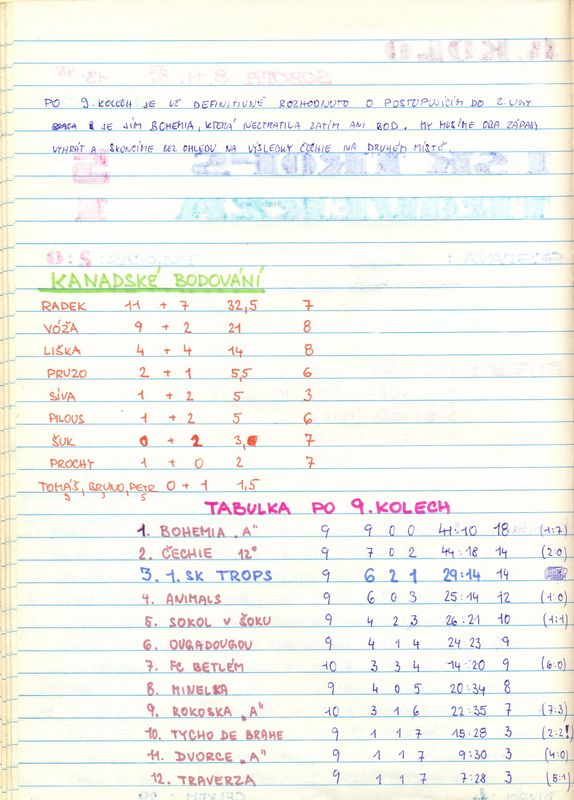 PO 9. KOLECH JE UŽ DEFINITIVNĚ ROZHODNUTO O POSTUPUJÍCÍM DO 2. LIGY
JE JÍM BOHEMIA, KTERÁ NEZTRATILA ZATÍM ANI BOD. MY MUSÍME OBA ZÁPASY
VYHRÁT A SKONČÍME BEZ OHLEDU NA VÝSLEDKY ČECHIE NA DRUHÉM MÍSTĚ.
KANADSKÉ BODOVÁNÍ
RADEK 11 + 7 32,5 7
VÓŽA 9 + 2 21 8
LIŠKA 4 + 4 14 8
PRUZO 2 + 1 5,5 6
SÍVA 1 + 2 5 3
PILOUS 1 + 2 5 6
ŠUK 0 + 2 3, 7
PROCHY 1 + 0 2 7
TOMÁŠ, BRUNO, PETR 0 + 1 1,5
TABULKA PO 9. KOLECH
1. BOHEMIA „A" 9 9 0 0 41:10 18 (1:7)
2. ČECHIE 12° 9 7 0 2 44:18 14 (2:0)
3. 1. SK TROPS 9 6 2 1 29:14 14
4. ANIMALS 9 6 0 3 25:14 12 (1:0)
5. SOKOL V ŠOKU 9 4 2 3 26:21 10 (1:1)
6. OUGADOUGOU 9 4 1 4 24:23 9
7. FC BETLÉM 10 3 3 4 14:20 9 (6:0)
8. MINELKA 9 4 0 5 20:34 8
9. ROKOSKA „A" 10 3 1 6 22:35 7 (7:3)
10. TYCHO DE BRAHE 9 1 1 7 15:28 3 (2:2!)
11. DVORCE „A" 9 1 1 7 9:30 3 (4:0)
12. TRAVERZA 9 1 1 7 7:28 3 (5:1)